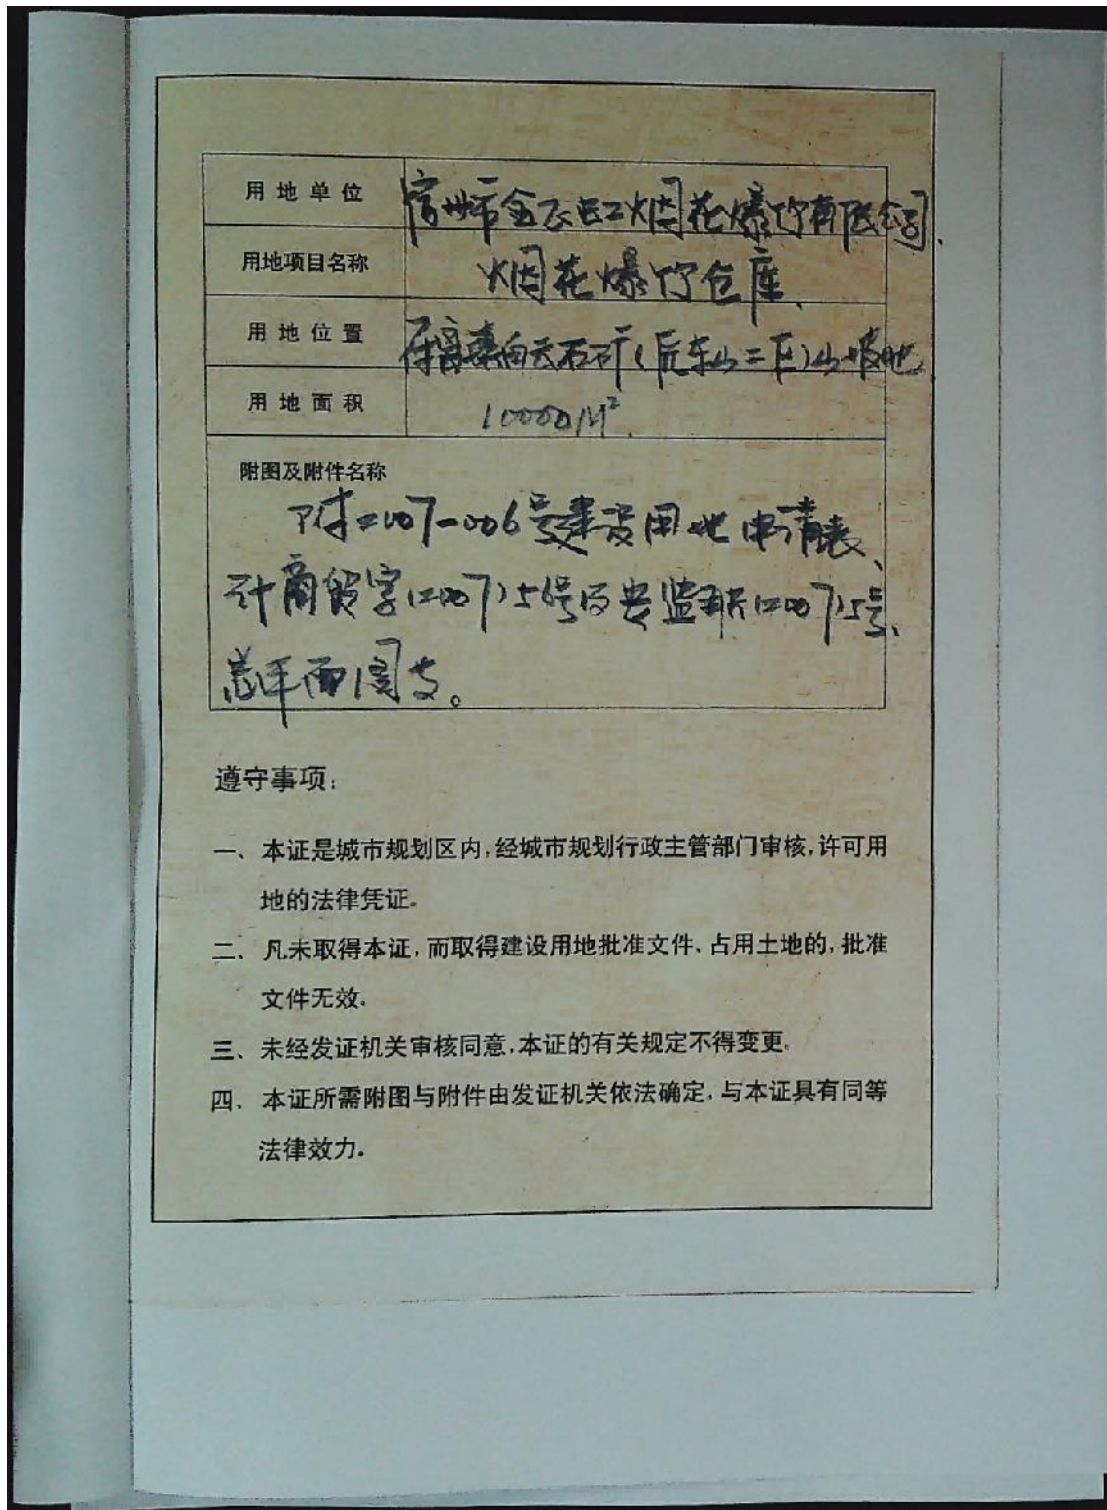 用地单位 宿州市金飞虹烟花爆竹有限公司、
用地项目名称 烟花爆竹仓库、
用地位置 白云石矿(东山二区)山坡地
用地面积 10000M²、
附图及附件名称
附2007-006号建设用地申请表、
计商贸字(2007)56号 安监 (2007)5号、
总平面图 。
遵守事项:
一、本证是城市规划区内,经城市规划行政主管部门审核,许可用
地的法律凭证。
二、凡未取得本证,而取得建设用地批准文件、占用土地的,批准
文件无效。
三、未经发证机关审核同意,本证的有关规定不得变更。
四、本证所需附图与附件由发证机关依法确定,与本证具有同等
法律效力。